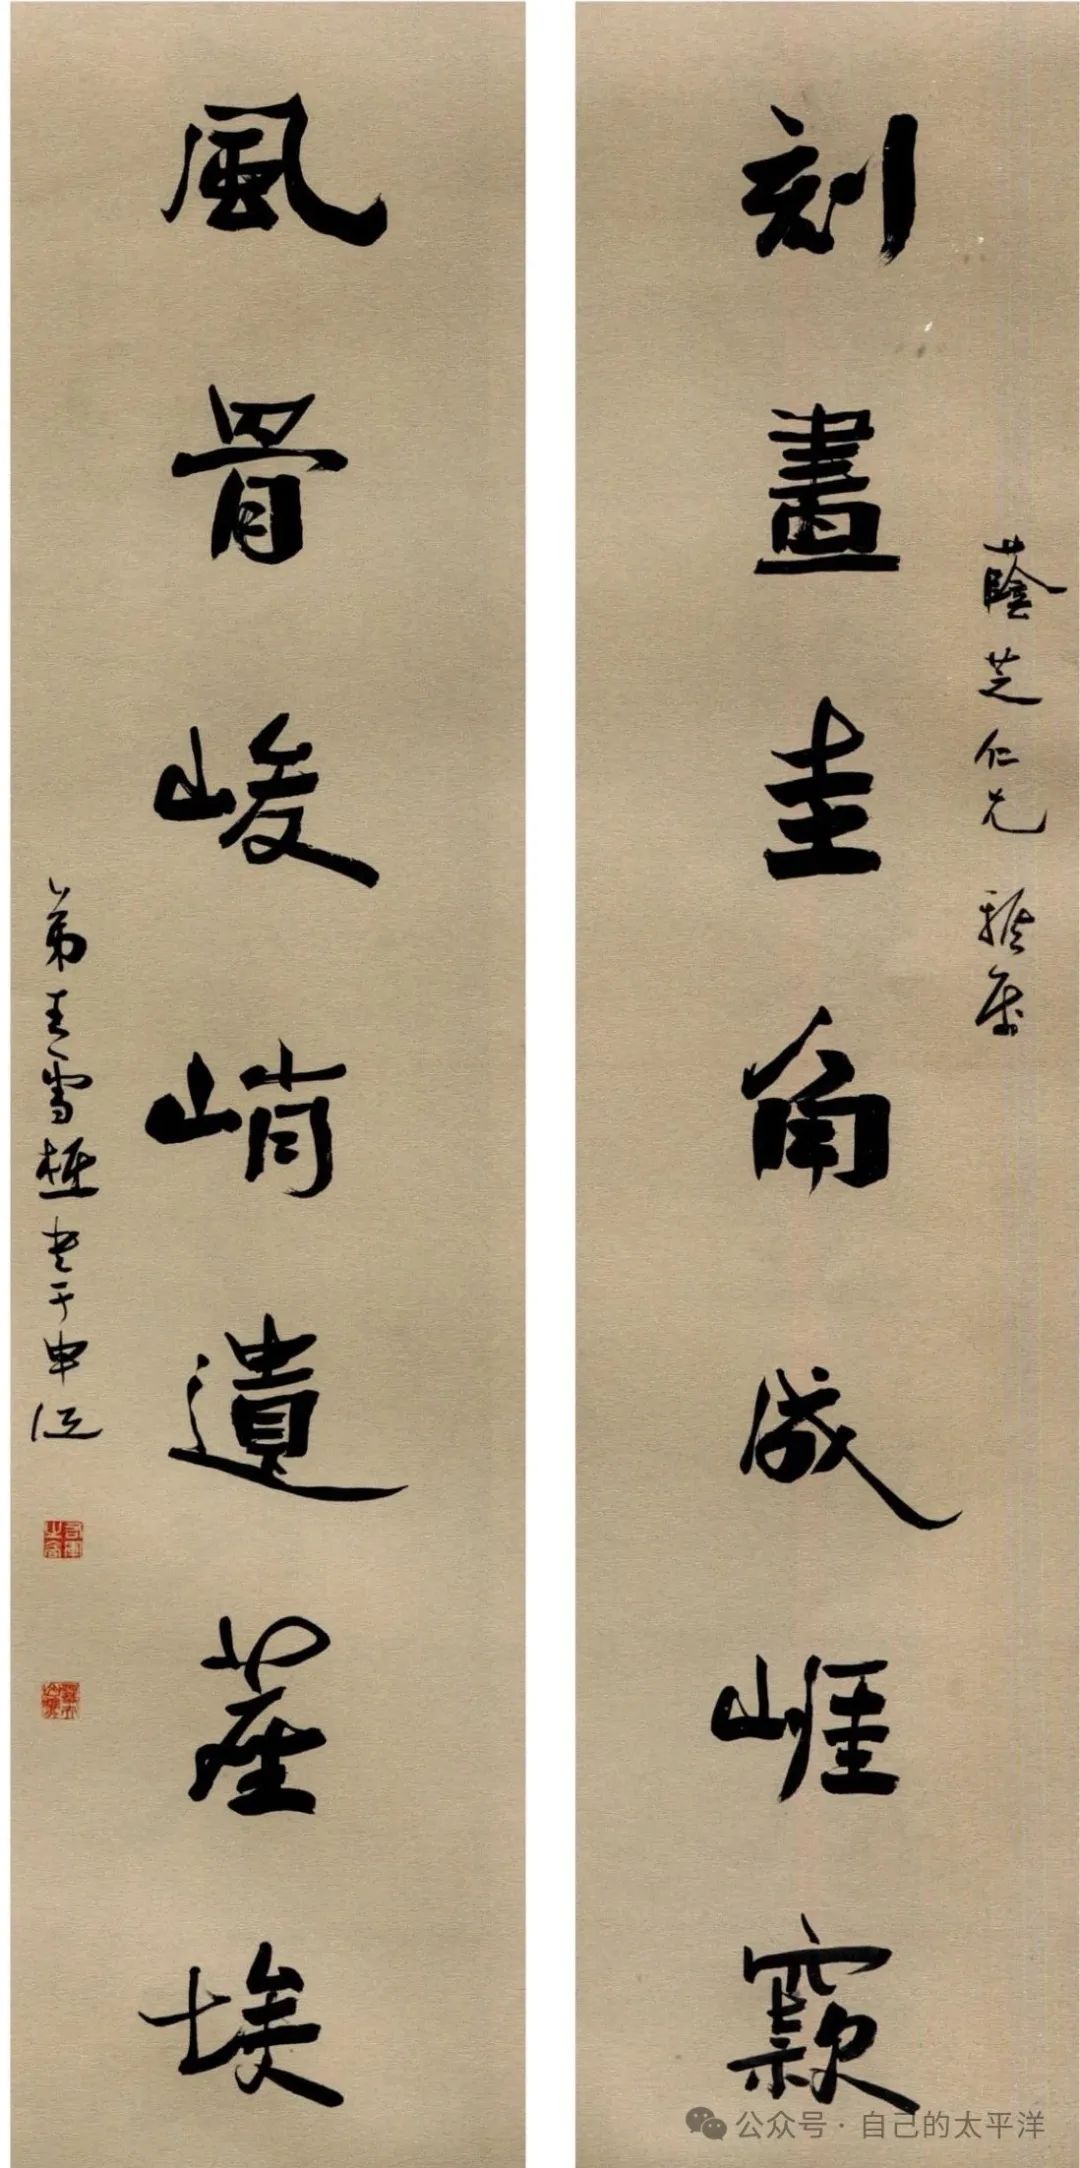 蔭芝仁兄 雅屬
刻畫圭角成崕窾
風骨峻峭遺塵埃
弟王雪 書于申江
公众号 · 自己的太平洋